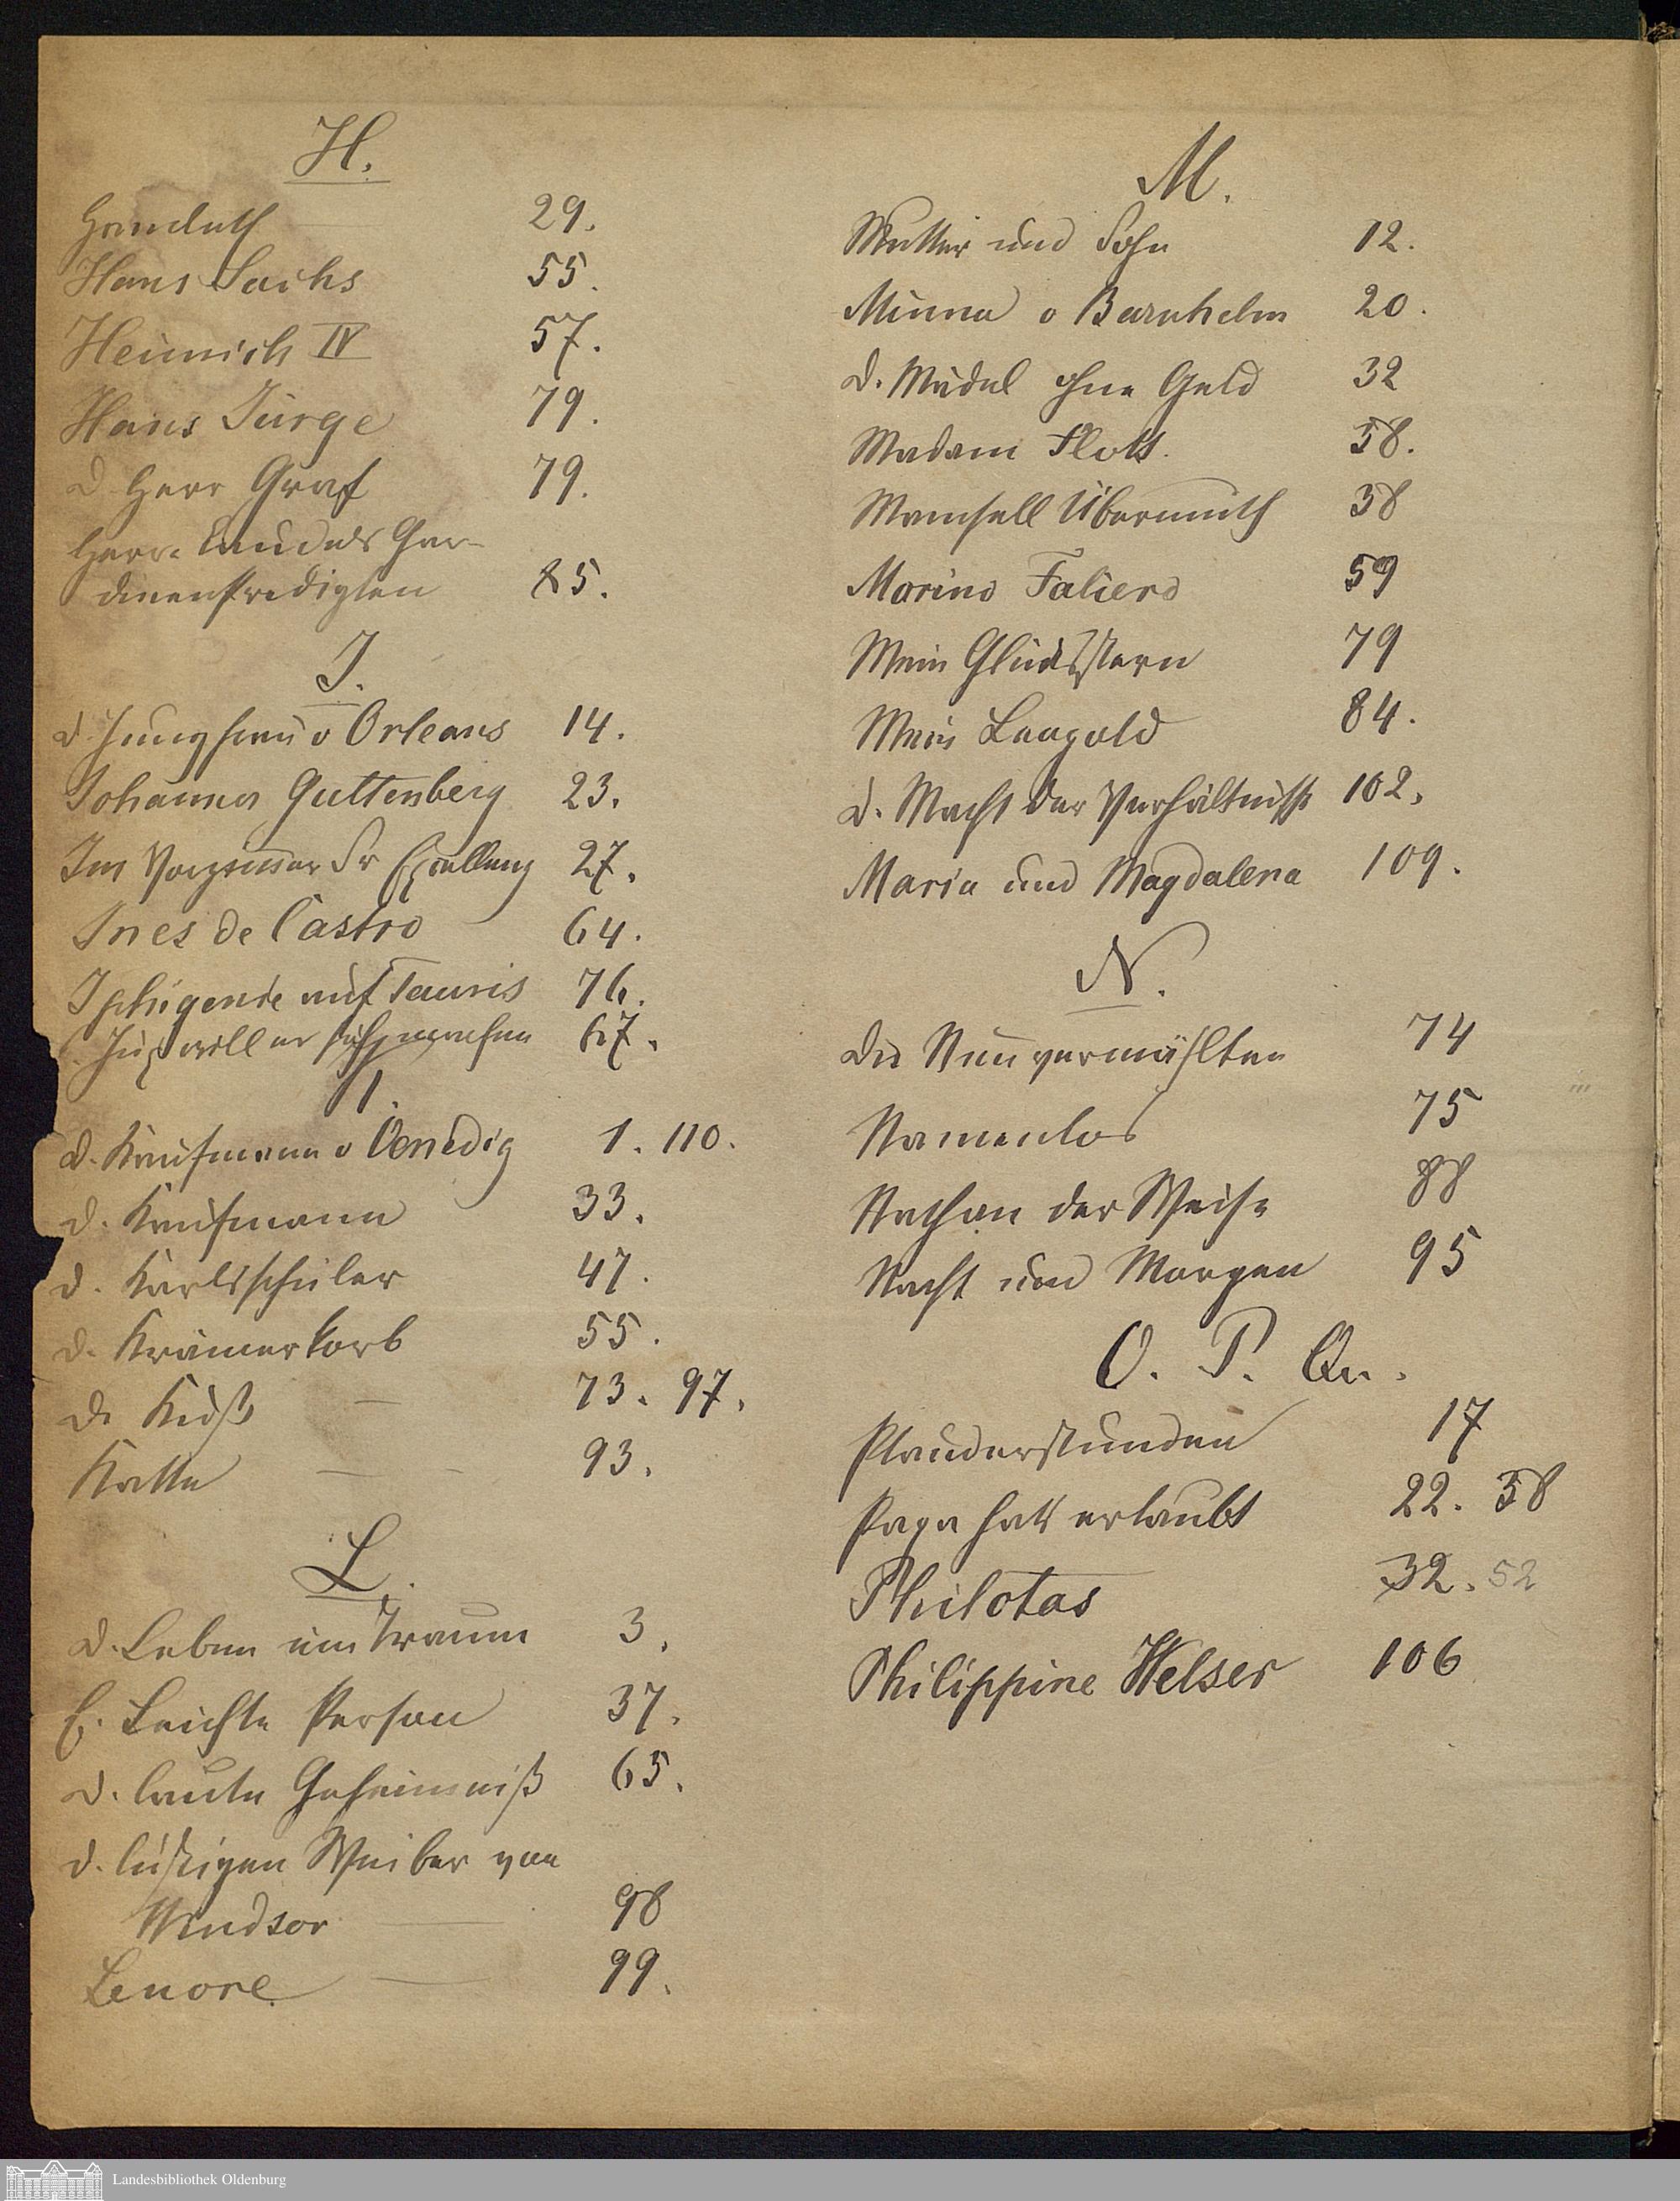 H.
Hamleth 29.
Hans Sachs 55.
Heinrich IV 57.
Hans Jürge 79.
D Herr Graf 79.
Herr Caudels Gar-
dinenpredigten 85.
J.
d. Jungfrau v Orleans 14.
Johannes Guttenberg 23.
Im Vorzimmer Sr Excellenz 27.
Ines de Castro 64.
Iphigenie auf Tauris 76.
Jux will er sich machen 67.
K.
d. Kaufmann v Venedig 1. 110.
d. Kaufmann 33.
d. Karlsschüler 47.
d. Krämerkorb 55.
d. Kuß 73. 97.
Katte 93.
L.
d. Leben ein Traum 3.
E. Leichte Person 37.
d. laute Geheimniß 65.
d. lustigen Weiber von
Windsor 98
Lenore 99.
M.
Mutter und Sohn 12.
Minna v Barnhelm 20.
d. Mädel ohne Geld 32
Madam Flott. 58.
Mamsell Übermuth 38
Marino Faliero 59
Mein Glücksstern 79
Mein Leopold 84.
d. Macht der Verhältniße 102.
Maria und Magdalena 109.
N.
Die Neuvermählten 74
Namenlos 75
Nathan der Weise 88
Nacht und Morgen 95
O. P. Qu.
Plauderstunden 17
Papa hats erlaubt 22. 58
Philotas 32. 52
Philippine Welser 106
Landesbibliothek Oldenburg